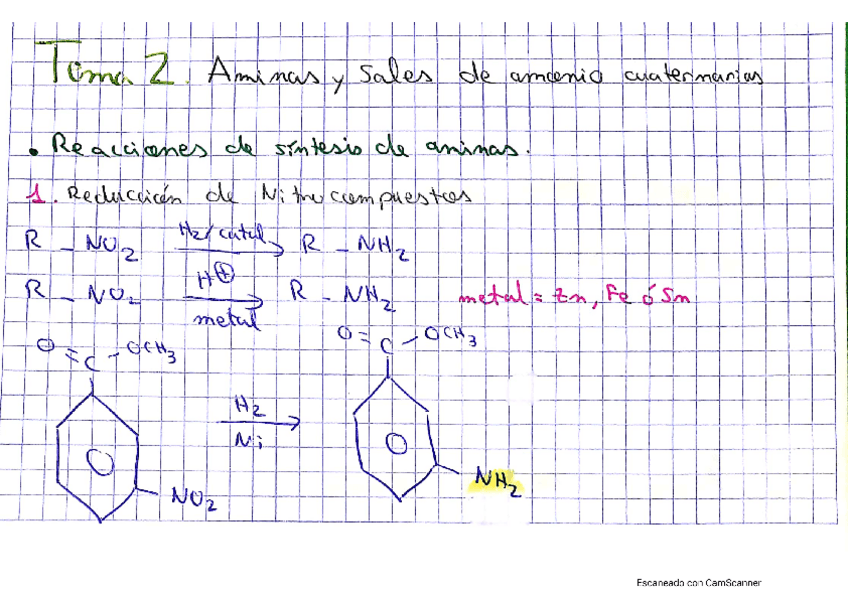 Tema 2. Aminas y Sales de amonio cuaternarias
• Reacciones de síntesis de aminas.
1. Reducción de Nitrocompuestos
R - NO2 H2/catal R - NH2
R - NO2 H⊕ metal R - NH2 metal = Zn, Fe ó Sn
O = C - OCH3 O = C - OCH3
H2
Ni
NO2 NH2
Escaneado con CamScanner